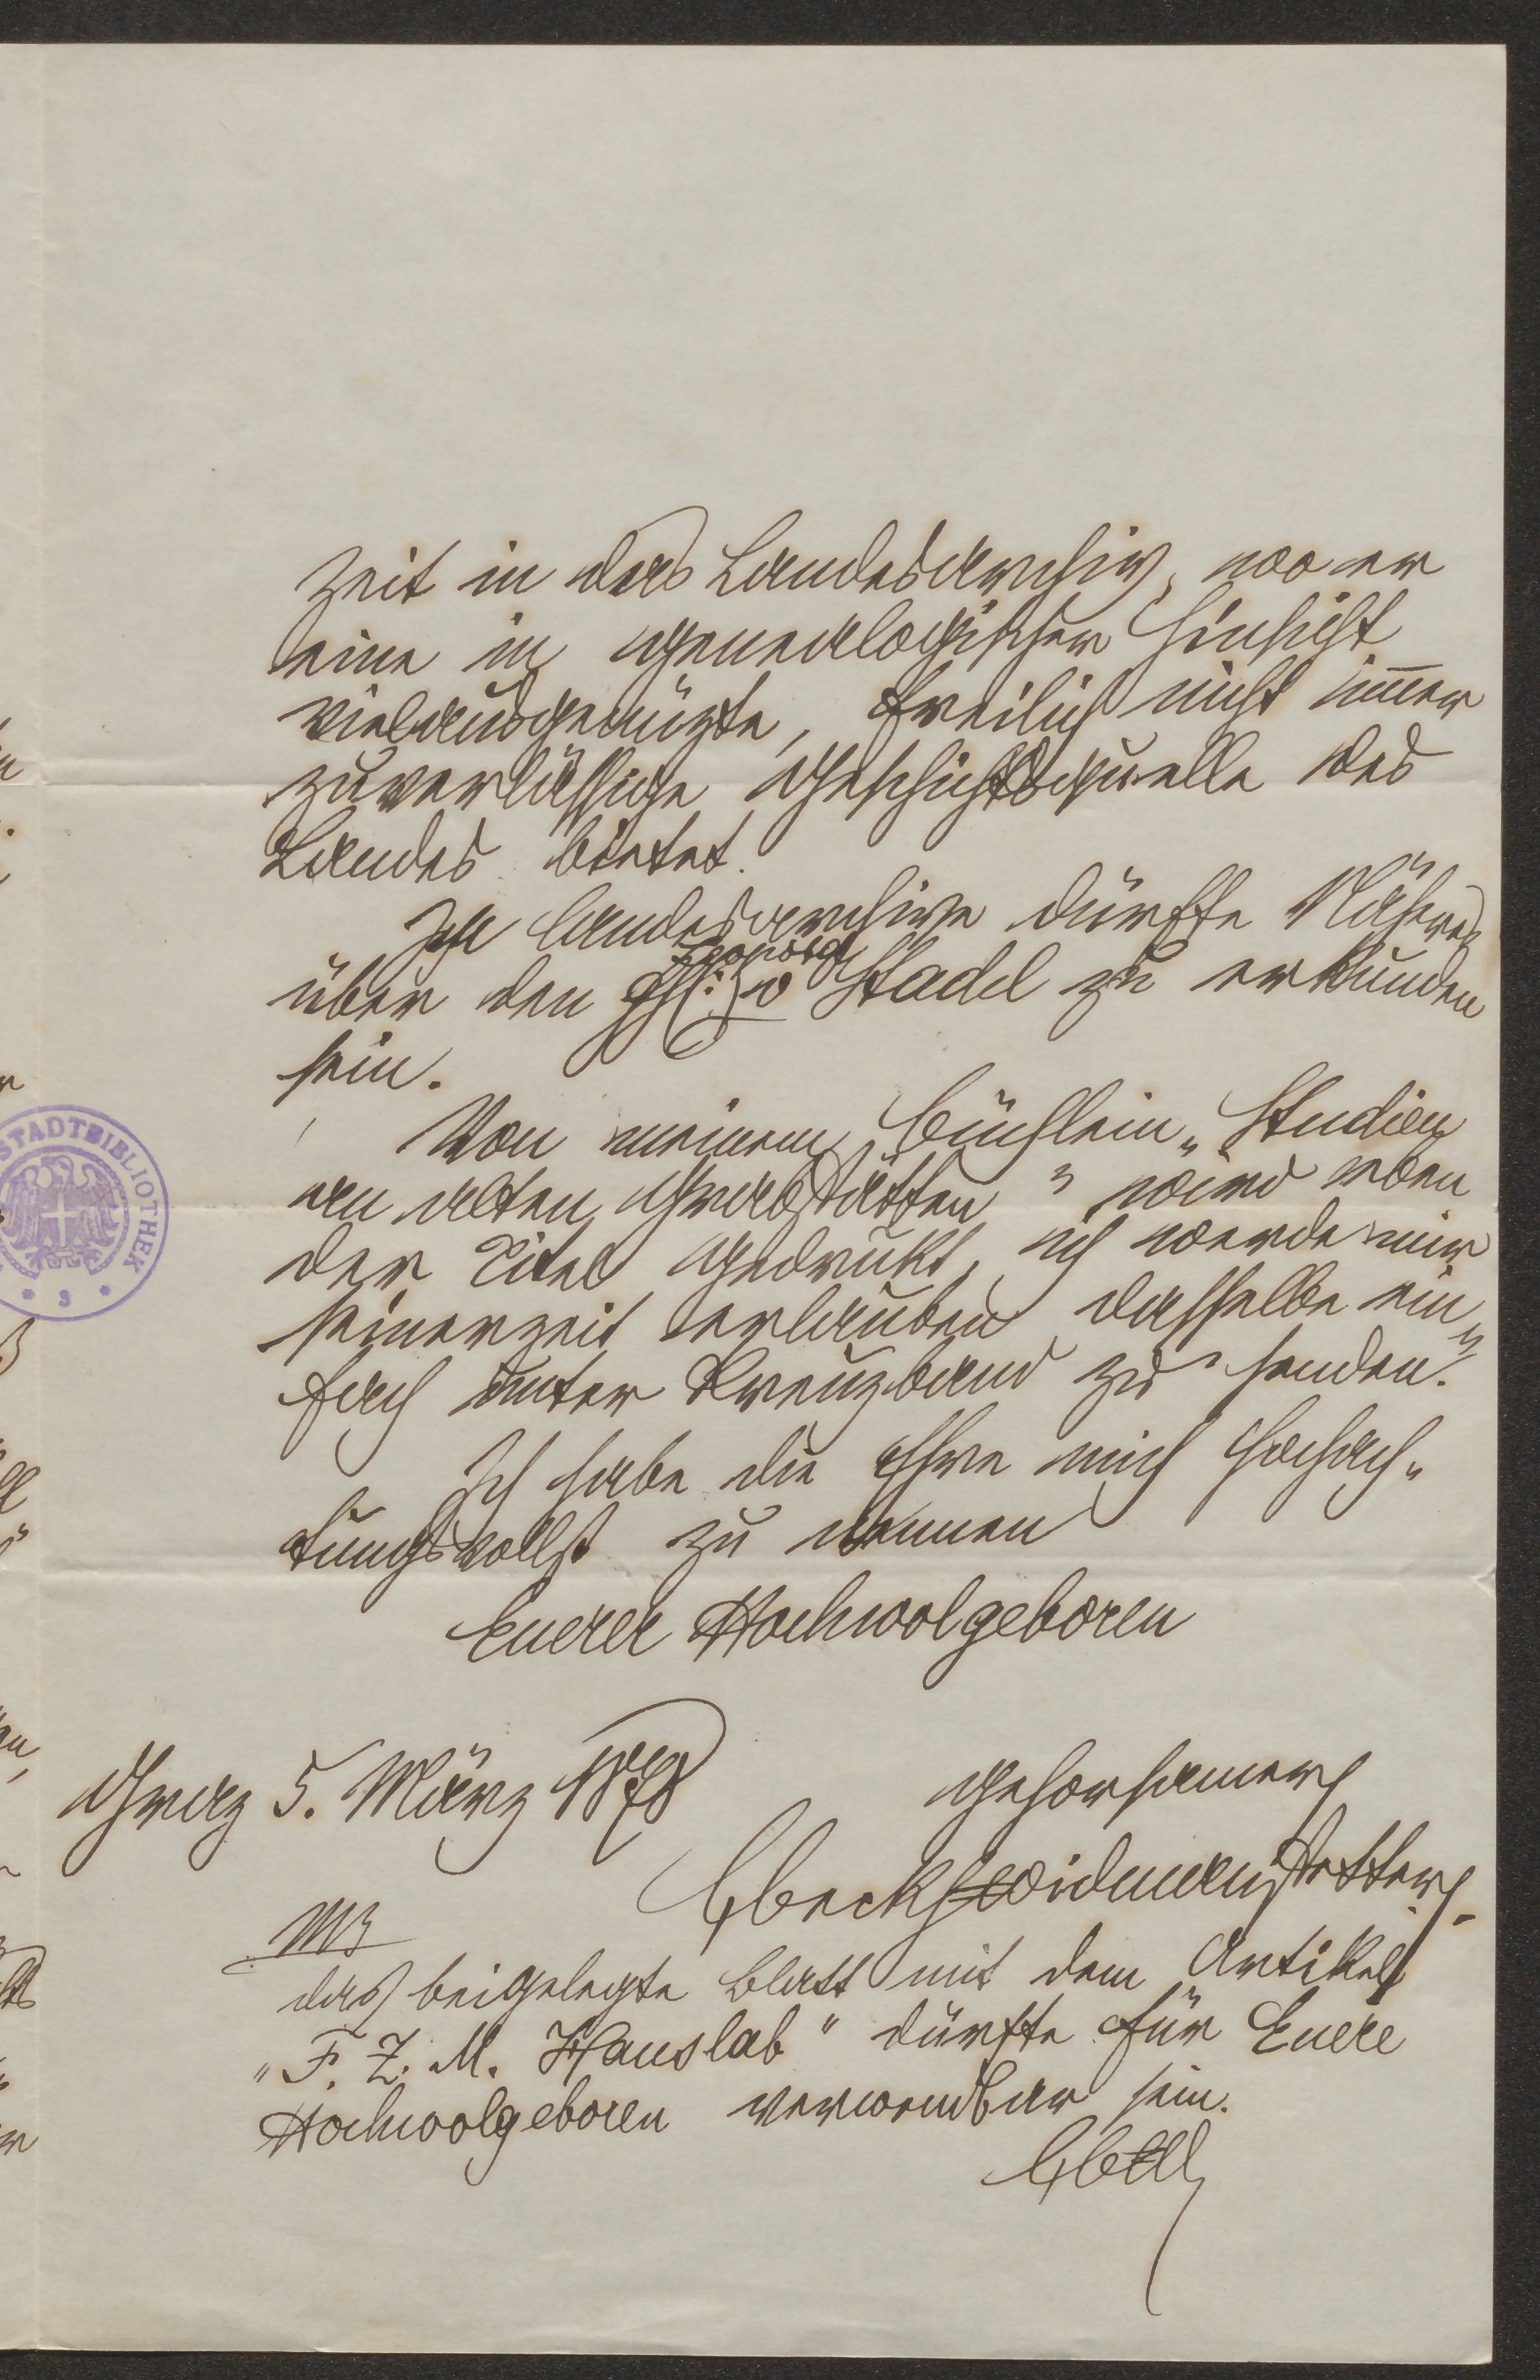 Zeit in das Landesarchiv, wo er
eine in genealogischer Hinsicht
vielausgenüzte, freilich nicht im̅er
zuverlässige Geschichtsquelle des
Landes bietet.
Im Landesarchive dürfte Näheres
Leopold
über den v Stadl zu erkunden
sein.
Von meinem Büchlein „Studien
an alten Grabstätten" wird eben
der Titel gedrukt, ich werde mir
seinerzeit erlauben dasselbe ein„
fach unter Kreuzband zu senden.
Ich habe die Ehre mich hochach„
tungsvollst zu nennen
Euerer Hochwolgeboren
Graz 5. März 1878
gehorsamer
LBeckhWidmanstetter.
NB
das beigelegte Blatt mit dem Artikel
„F. Z. M. Hauslab" dürfte für Euere
Hochwolgeboren verwendbar sein.
STADTBIBLIOTHEK